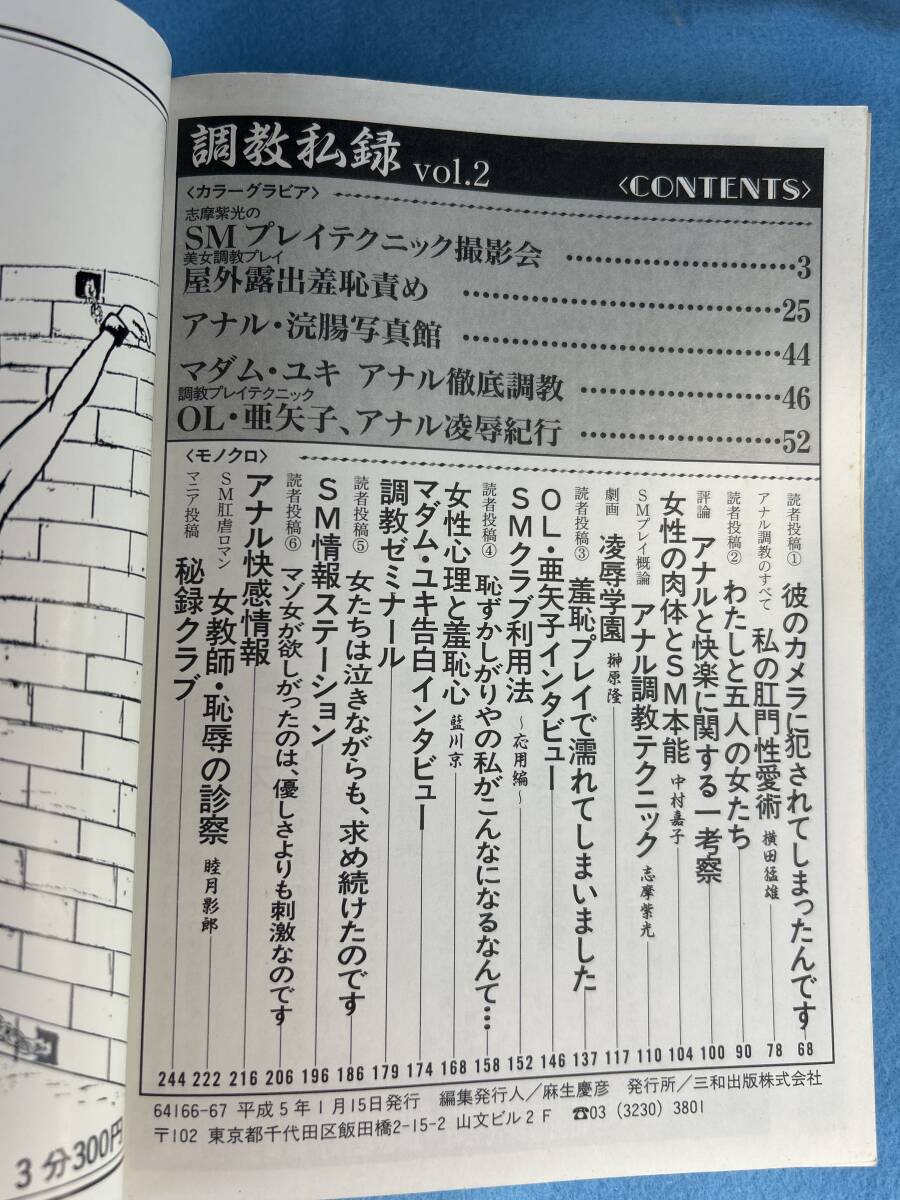 調教私録 vol.2 〈CONTENTS〉
〈カラーグラビア〉
志摩紫光の
SMプレイテクニック撮影会 3
美女調教プレイ
屋外露出羞恥責め 25
アナル・浣腸写真館 44
マダム・ユキ アナル徹底調教 46
調教プレイテクニック
OL・亜矢子、アナル凌辱紀行 52
〈モノクロ〉
読者投稿① 彼のカメラに犯されてしまったんです 68
アナル調教のすべて 私の肛門性愛術 横田猛雄 78
読者投稿② わたしと五人の女たち 90
評論 アナルと快楽に関する一考察 100
女性の肉体とSM本能 中村嘉子 104
SMプレイ概論 アナル調教テクニック 志摩紫光 110
劇画 凌辱学園 榊原隆 117
読者投稿③ 羞恥プレイで濡れてしまいました 137
OL・亜矢子インタビュー 146
SMクラブ利用法 ～応用編～ 152
読者投稿④ 恥ずかしがりやの私がこんなになるなんて… 158
女性心理と羞恥心 藍川京 168
マダム・ユキ告白インタビュー 174
調教ゼミナール 179
読者投稿⑤ 女たちは泣きながらも、求め続けたのです 186
SM情報ステーション 196
読者投稿⑥ マゾ女が欲しがったのは、優しさよりも刺激なのです 206
アナル快感情報 216
SM肛虐ロマン 女教師・恥辱の診察 睦月影郎 222
マニア投稿 秘録クラブ 244
64166-67 平成5年1月15日発行 編集発行人／麻生慶彦 発行所／三和出版株式会社
〒102 東京都千代田区飯田橋2-15-2 山文ビル2F ☎03(3230)3801
3分300円